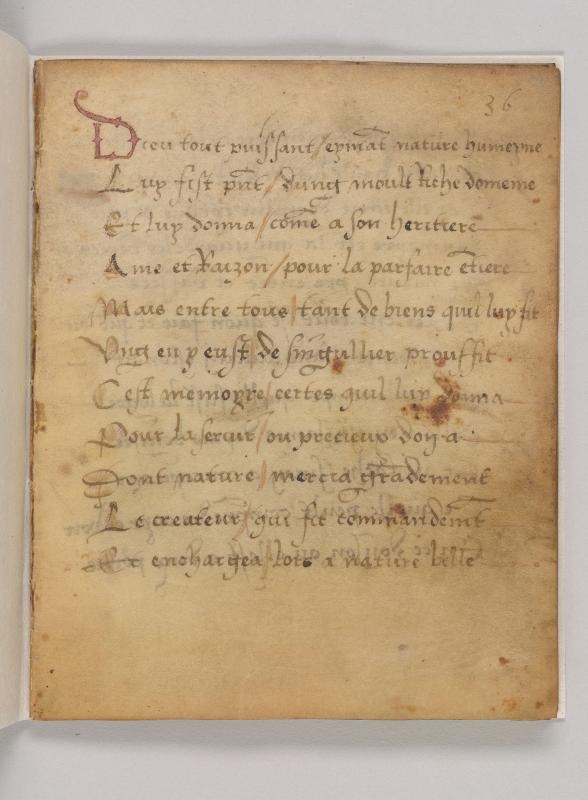 36
Dieu tout puissant / aymāt nature humeyne
Luy fist p̄nt / dung moult Riche domeine
Et luy donna / com̄e a son heritiere
Ame et Raizon / pour la parfaire ētiere
Mais entre tous / tant de biens quil luy fit
Vng en y eust / de singullier prouffit
Cest memoyre / certes quil luy donna
Pour la seruir / ou precieux don a
Dont nature / mercia grādement
Le createur / qui fit commandem̄t
Et enchargea lors a nature belle